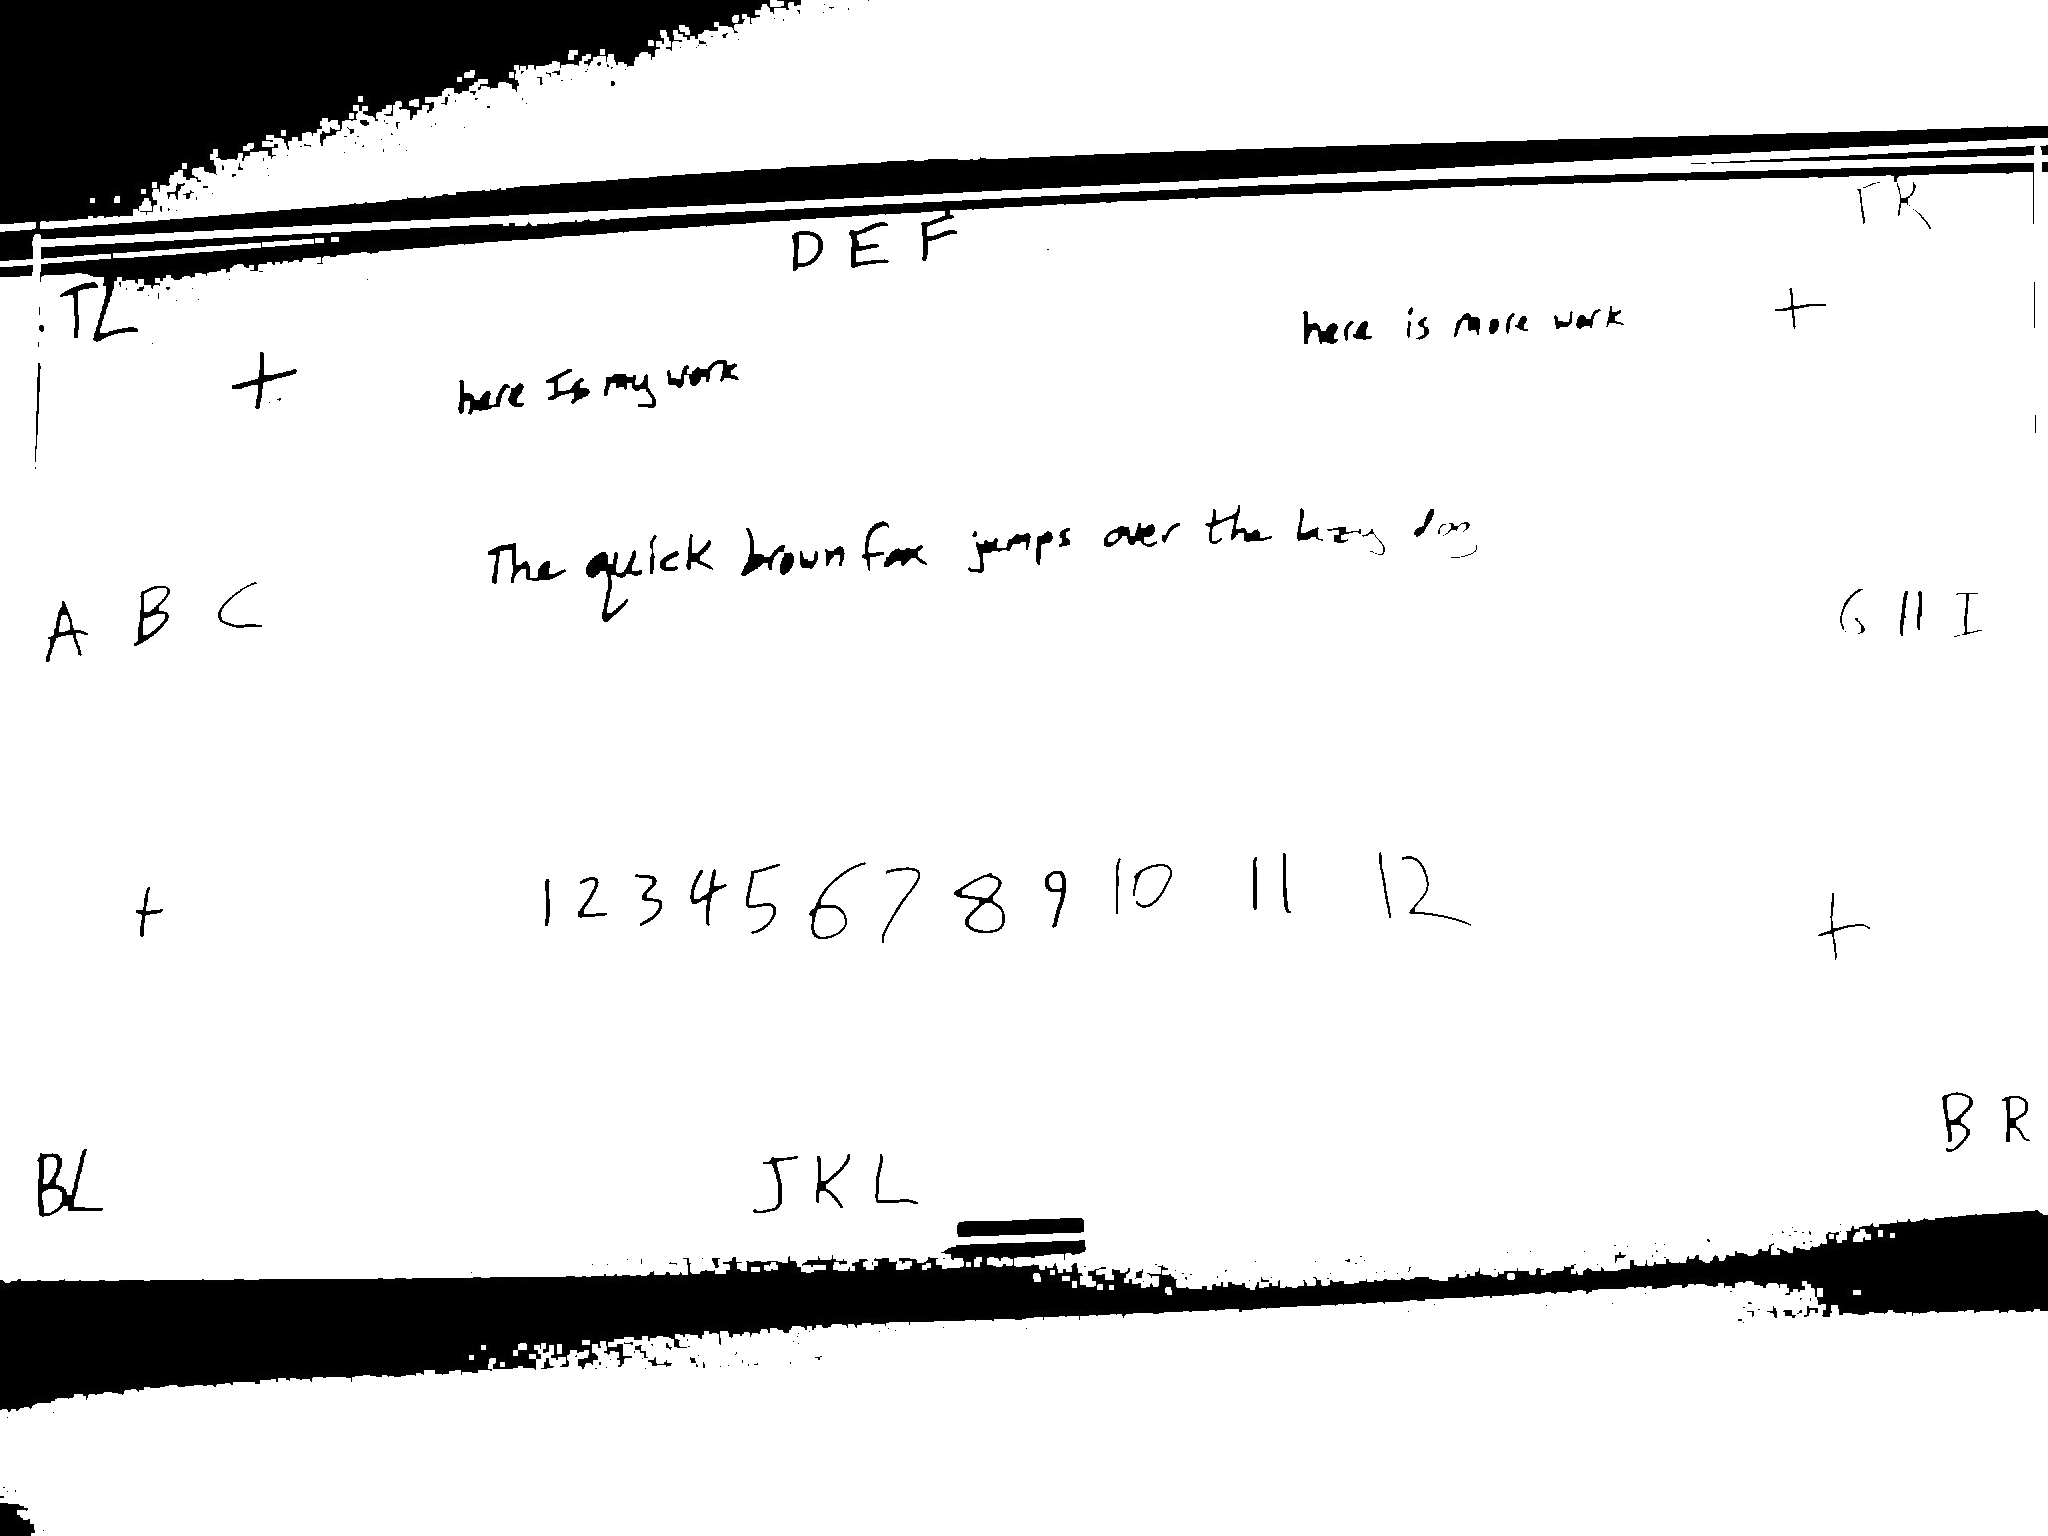 TR
D E F
TL
here is more work +
+ here Is my work
The quick brown fox jumps over the lazy dog
A B C
G H I
+ 1 2 3 4 5 6 7 8 9 10 11 12 +
B R
BL
J K L